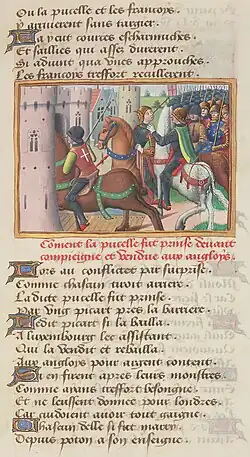 Ou la pucelle et les francois
Y arriverent sans targer
La y eut courses escharmuches
Et saillies qui assez durerent
Si advint qua unes approuches
Les francois tresfort recullerent
Coment la pucelle fut prinse devant
compieigne et vendue aux angloys
Lors au conflict et par surprise
Comme chascun tiroit arriere
Ladite pucelle fut prinse
Par ung picart pres la barriere
Ledit picart si la bailla
A luxembourg lors assistant
Qui la vendit et rebailla
Aux angloys pour argent content
Si en firent apres leurs monstres
Comme ayans tresfort besongne
Et ne leussent donnee pour londres
Car cuidoient avoir tout gaigne
Chascun delle si fut marry
Depuis poton a son enseigne